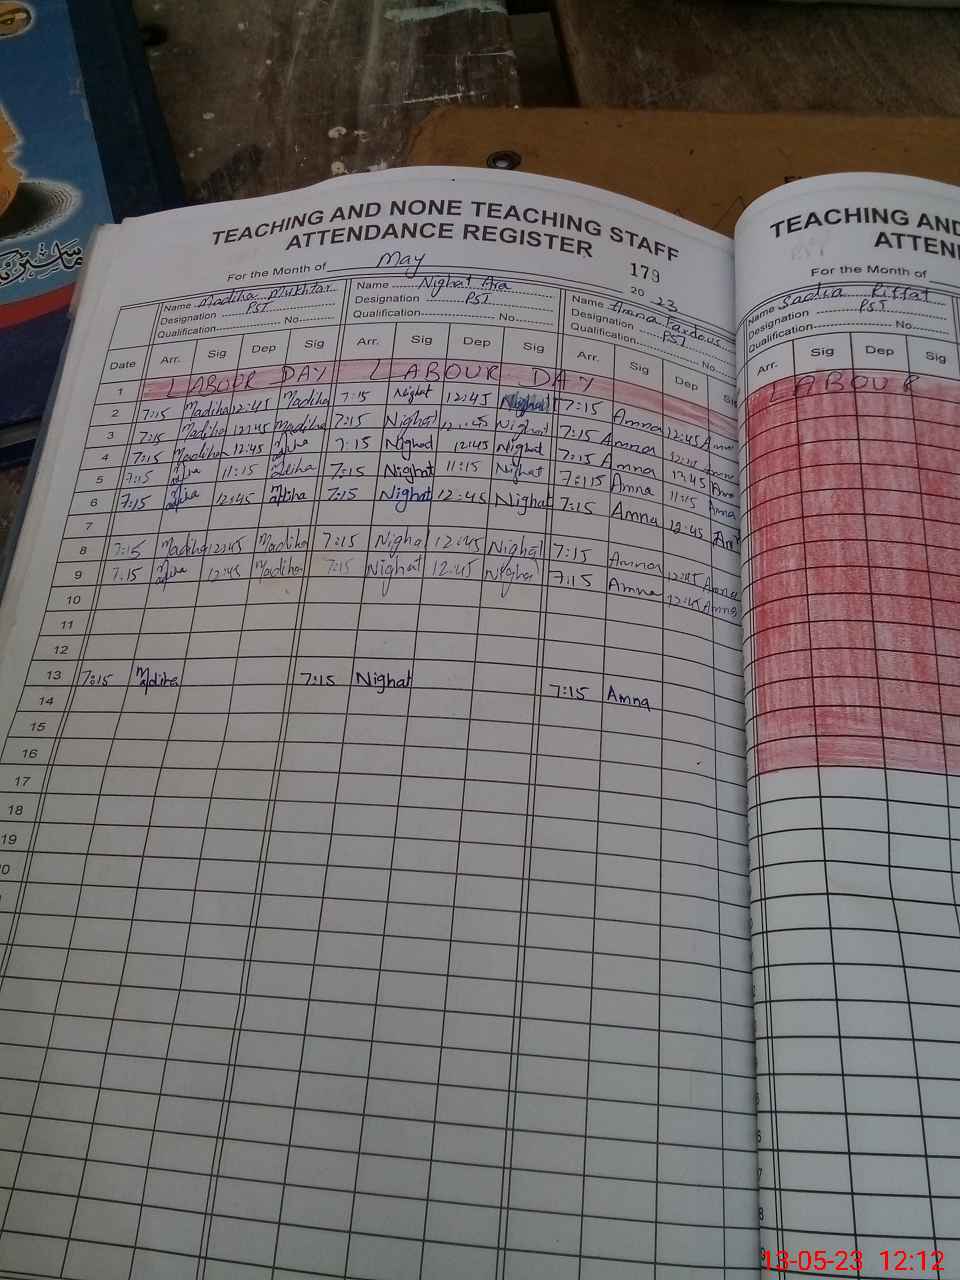 TEACHING AND NONE TEACHING STAFF
ATTENDANCE REGISTER
179
For the Month of May 2023
Name Madiha Mukhtar Name Nighat Ara Name Amna Fardous
Designation PST Designation PST Designation PST
Qualification No Qualification No Qualification No
Date Arr. Sig Dep Sig Arr. Sig Dep Sig Arr. Sig Dep Sig
1 LABOUR DAY LABOUR DAY
2 7:15 Madiha 12:45 Madiha 7:15 Nighat 12:45 Nighat 7:15 Amna 12:45 Amna
3 7:15 Madiha 12:45 Madiha 7:15 Nighat 12:45 Nighat 7:15 Amna 12:45
4 7:15 Madiha 12:45 Madiha 7:15 Nighat 12:45 Nighat 7:15 Amna 12:45
5 7:15 Madiha 11:15 Madiha 7:15 Nighat 11:15 Nighat 7:15 Amna 11:15 Amna
6 7:15 Madiha 12:45 Madiha 7:15 Nighat 12:45 Nighat 7:15 Amna 12:45
7
8 7:15 Madiha 12:45 Madiha 7:15 Nighat 12:45 Nighat 7:15 Amna 12:45 Amna
9 7:15 Madiha 12:45 Madiha 7:15 Nighat 12:45 Nighat 7:15 Amna 12:45 Amna
10
11
12
13 7:15 Madiha 7:15 Nighat 7:15 Amna
14
15
16
17
18
19
TEACHING AND
ATTEN
For the Month of
Name Sadia Riffat
Designation PST
Qualification No
Arr. Sig Dep Sig
LABOUR
13-05-23 12:12